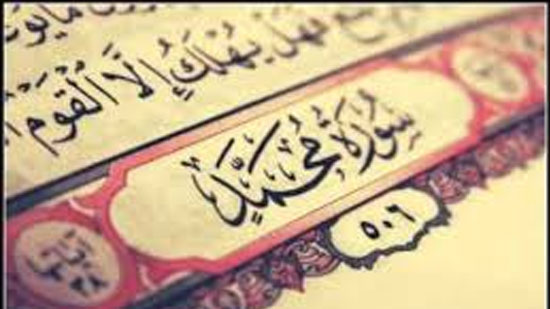 مَا يُوعَدُونَ
فَهَلْ يُهْلَكُ إِلَّا الْقَوْمُ
سُورَةُ مُحَمَّدٍ
٥٠٦